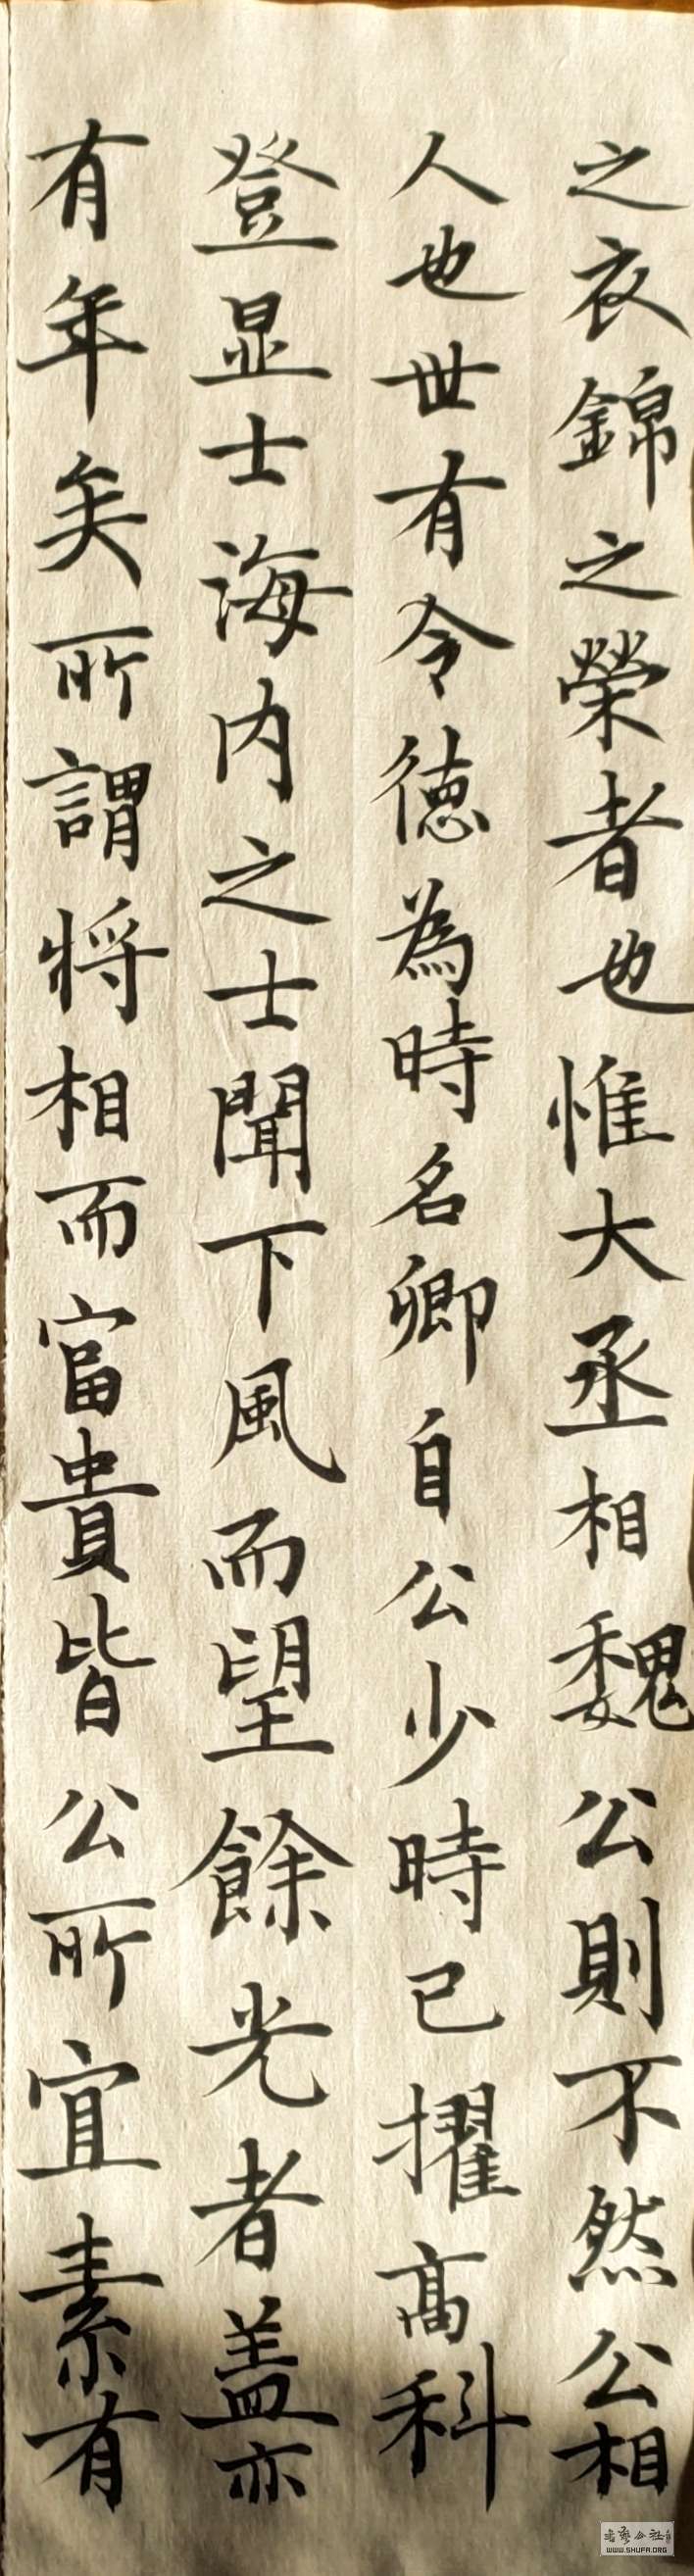 之衣錦之榮者也惟大丞相魏公則不然公相
人也世有令徳為時名卿自公少時已擢髙科
登显士海内之士聞下風而望餘光者盖亦
有年矣所謂将相而富貴皆公所宜素有
WWW.SHUFA.ORG